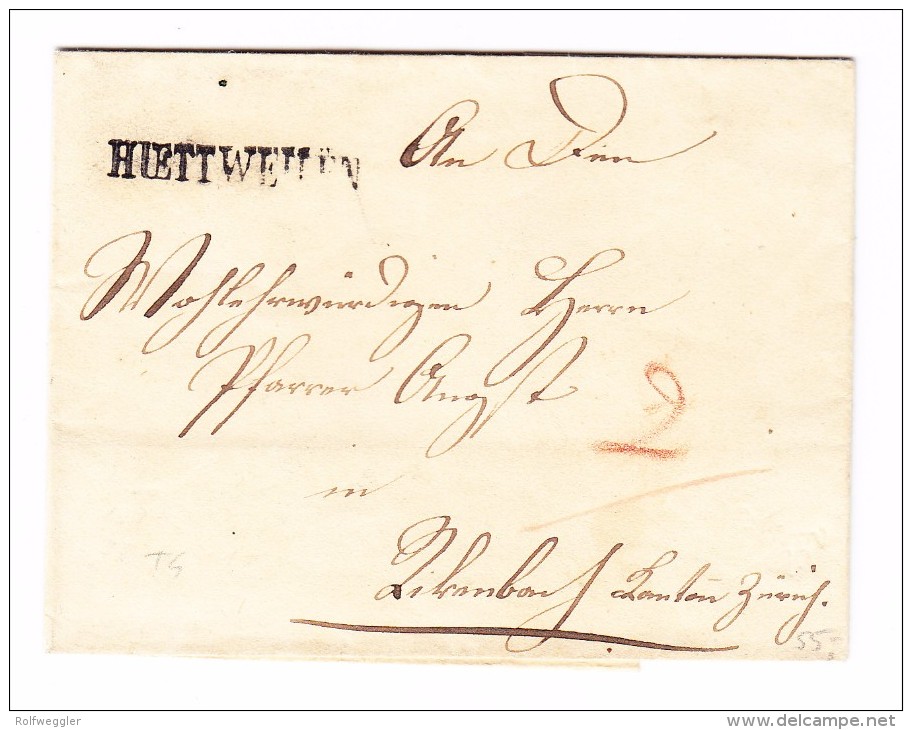 HŒTTWEILEN
An Den
Wohlehrwürdigen Herrn
Pfarrer Angst
2
in
Rikenbach Kanton Zürich.
TG
55.-
Rolfweggler
www.delcampe.net